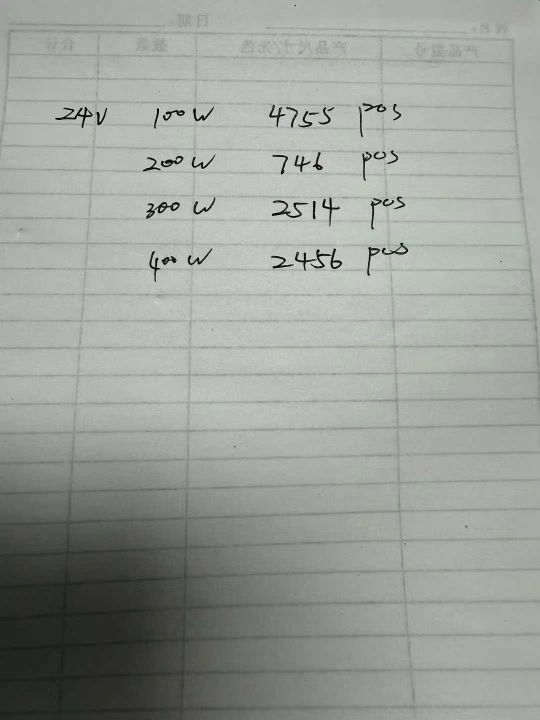 24V 100W 4755 pcs
200W 746 pcs
300W 2514 pcs
400W 2456 pcs